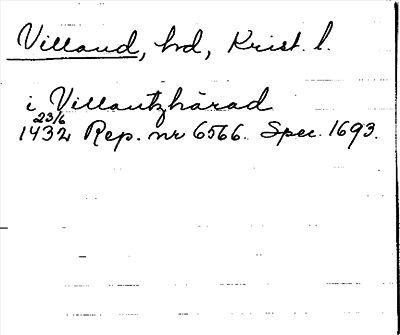 Villand, hd, Krist. l.
i Villantzhärad
23/6
1432 Rep. nr 6566. Spec. 1693.